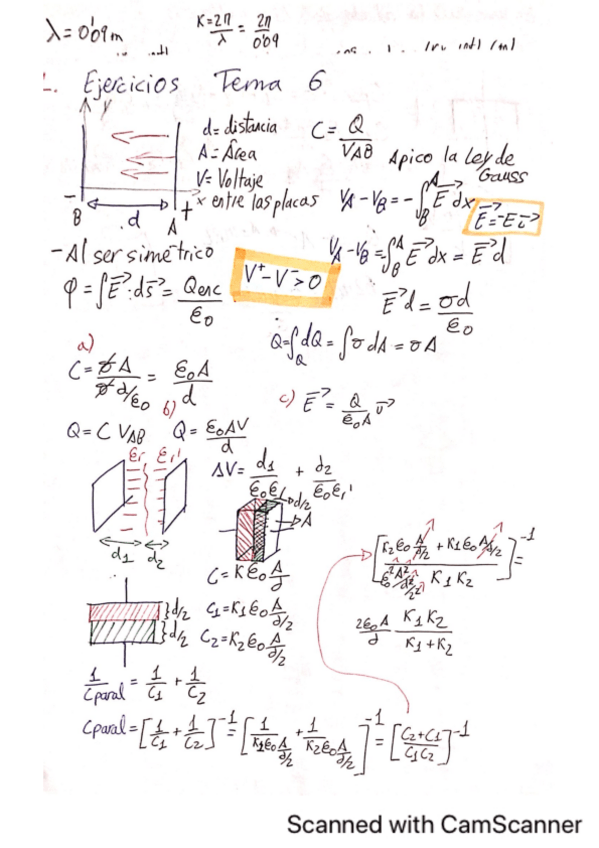 λ = 0'09 m
K = 2π/λ = 2π/0'09
Ejercicios Tema 6
y
- B
d
A +
x
d = distancia
A = Área
V = Voltaje entre las placas
C = Q/V_AB
Apico la Ley de Gauss
V_A - V_B = -∫_B^A E⃗ dx
E⃗ = -E i⃗
- Al ser simétrico
V_A - V_B = ∫_B^A E⃗ dx = E⃗ d
φ = ∫E⃗·ds⃗ = Q_enc/ε₀
V⁺ - V⁻ > 0
E⃗ d = σd/ε₀
Q = ∫_Q dQ = ∫σ dA = σA
a)
C = σA/(σd/ε₀) = ε₀A/d
b)
c) E⃗ = Q/(ε₀A)
Q = C V_AB
Q = ε₀AV/d
εr εr'
d₁ d₂
ΔV = d₁/(ε₀εr) + d₂/(ε₀εr')
d/2
A
C = Kε₀ A/d
[(K₂ε₀ A/(d/2) + K₁ε₀ A/(d/2)) / (ε₀² A²/(d²/2²) K₁K₂)]⁻¹ =
} d/2
} d/2
C₁ = K₁ε₀ A/(d/2)
C₂ = K₂ε₀ A/(d/2)
2ε₀A/d K₁K₂/(K₁+K₂)
1/Cparal = 1/C₁ + 1/C₂
Cparal = [1/C₁ + 1/C₂]⁻¹ = [1/(K₁ε₀ A/(d/2)) + 1/(K₂ε₀ A/(d/2))]⁻¹ = [(C₂+C₁)/(C₁C₂)]⁻¹
Scanned with CamScanner